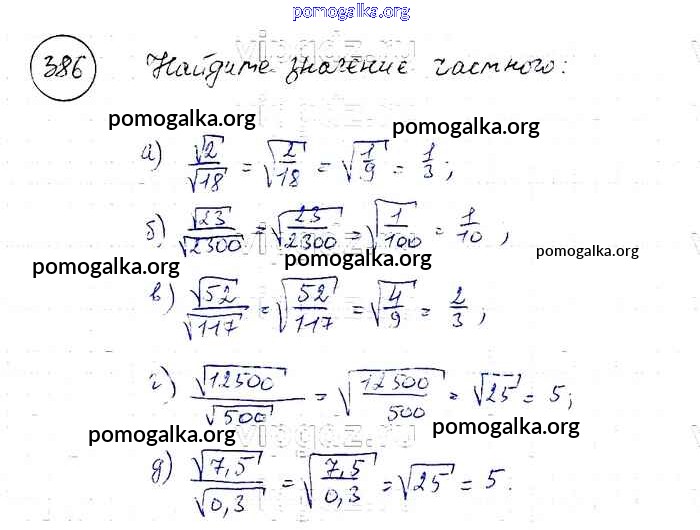 pomogalka.org
vipgdz.ru
386 Найдите значение частного:
pomogalka.org pomogalka.org
а) √2/√18 = √(2/18) = √(1/9) = 1/3;
б) √23/√2300 = √(23/2300) = √(1/100) = 1/10;
vipgdz.ru
pomogalka.org pomogalka.org pomogalka.org
в) √52/√117 = √(52/117) = √(4/9) = 2/3;
г) √12500/√500 = √(12500/500) = √25 = 5;
pomogalka.org pomogalka.org
vipgdz.ru
д) √7,5/√0,3 = √(7,5/0,3) = √25 = 5.